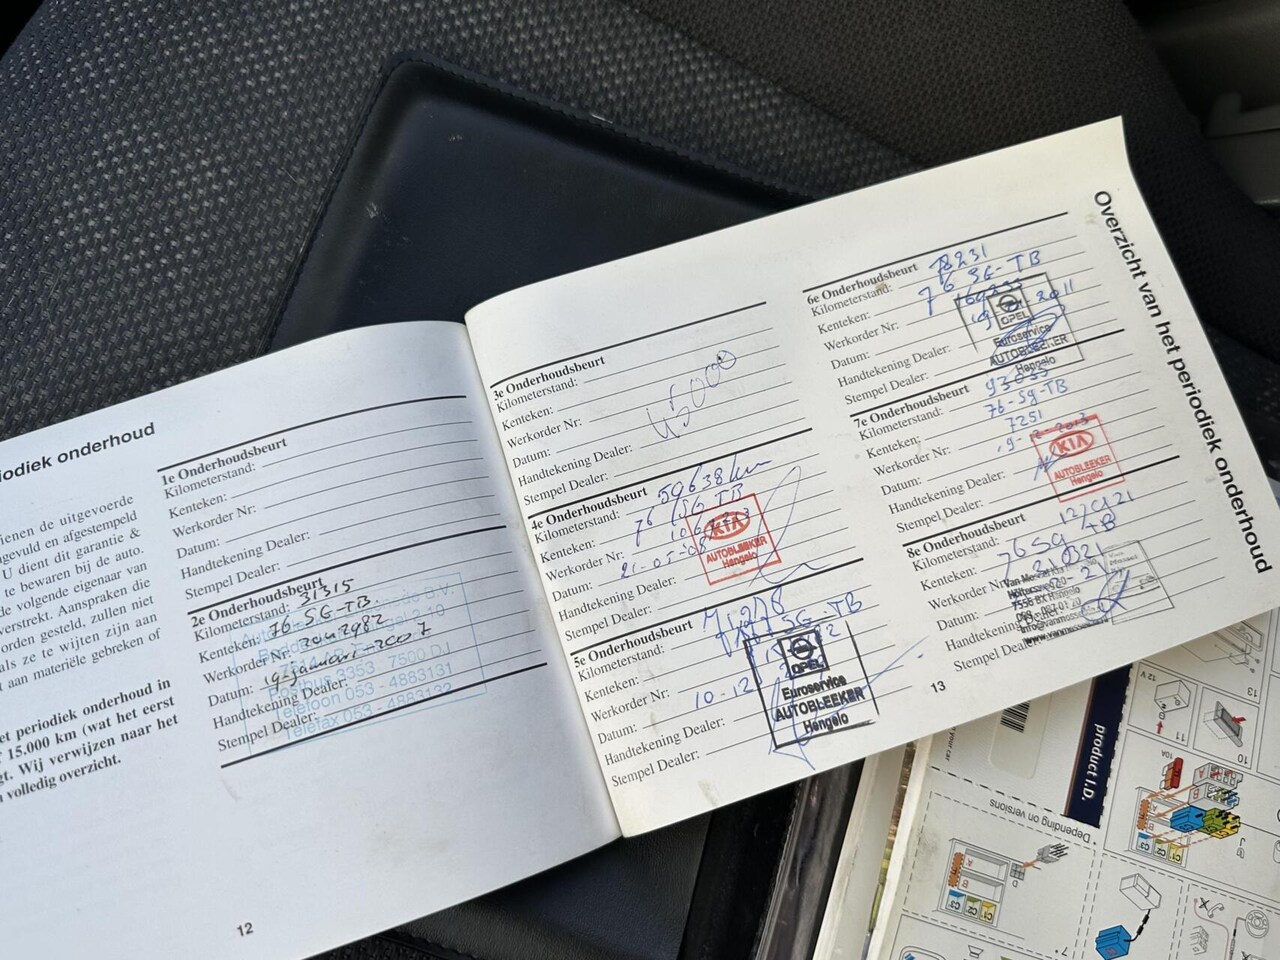 iodiek onderhoud
ienen de uitgevoerde
gevuld en afgestempeld
U dient dit garantie &
te bewaren bij de auto.
de volgende eigenaar van
verstrekt. Aanspraken die
orden gesteld, zullen niet
als ze te wijten zijn aan
aan materiële gebreken of
et periodiek onderhoud in
15.000 km (wat het eerst
gt. Wij verwijzen naar het
volledig overzicht.
1e Onderhoudsbeurt
Kilometerstand:
Kenteken:
Werkorder Nr:
Datum:
Handtekening Dealer:
Stempel Dealer:
2e Onderhoudsbeurt
Kilometerstand: 31315
Kenteken: 76-SG-TB
Werkorder Nr: 20012982
Datum: 19-januari-2007
Handtekening Dealer:
Stempel Dealer:
Postbus 3353 - 7500 DJ
Telefoon 053 - 4883131
Telefax 053 - 4883132
12
3e Onderhoudsbeurt
Kilometerstand:
Kenteken:
Werkorder Nr:
Datum:
Handtekening Dealer:
Stempel Dealer:
45000
4e Onderhoudsbeurt
Kilometerstand: 59638 km
Kenteken: 76 SG TB
Werkorder Nr:
Datum: 21-05-08
Handtekening Dealer:
Stempel Dealer:
KIA
AUTOBLEEKER
Hengelo
5e Onderhoudsbeurt
Kilometerstand:
Kenteken: SG-TB
Werkorder Nr:
Datum: 10-12
Handtekening Dealer:
Stempel Dealer:
OPEL
Euroservice
AUTOBLEEKER
Hengelo
6e Onderhoudsbeurt
Kilometerstand: 78231
Kenteken: 76 SG-TB
Werkorder Nr:
Datum: 2011
Handtekening Dealer:
Stempel Dealer:
OPEL
Euroservice
AUTOBLEEKER
Hengelo
7e Onderhoudsbeurt
Kilometerstand: 93035
Kenteken: 76-SG-TB
Werkorder Nr: 7251
Datum: 2013
Handtekening Dealer:
Stempel Dealer:
KIA
AUTOBLEEKER
Hengelo
8e Onderhoudsbeurt
Kilometerstand:
Kenteken: 76 SG TB
Werkorder Nr:
Datum:
Handtekening Dealer:
Stempel Dealer:
7556 BX Hengelo
13
Overzicht van het periodiek onderhoud
product I.D.
Depending on versions
your car
12 V
13
11
10
10A
A
B
C3
C2
C1
D
A
B
C3
C2
C1